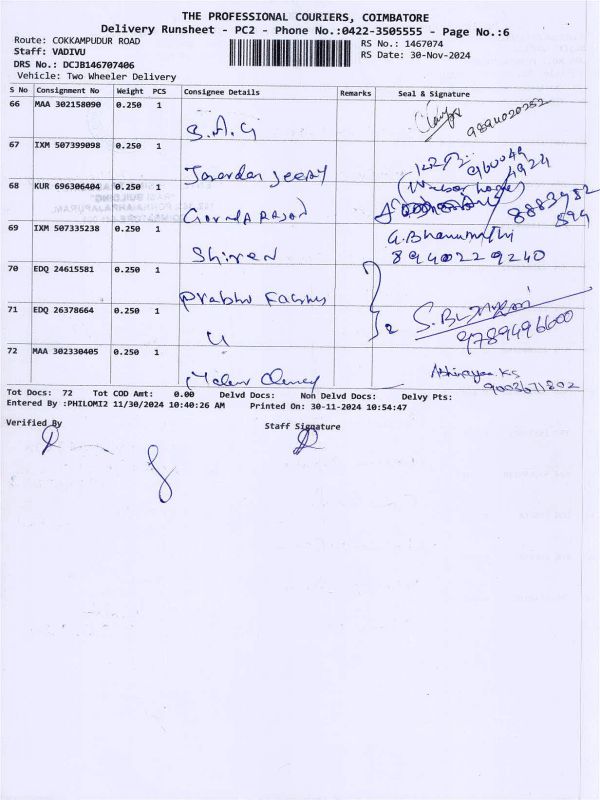 THE PROFESSIONAL COURIERS, COIMBATORE
Delivery Runsheet - PC2 - Phone No.:0422-3505555 - Page No.:6
Route: COKKAMPUDUR ROAD
RS No.: 1467074
Staff: VADIVU
RS Date: 30-Nov-2024
DRS No.: DCJB146707406
Vehicle: Two Wheeler Delivery
S No Consignment No Weight PCS Consignee Details Remarks Seal & Signature
66 MAA 302158090 0.250 1
B.A.G
67 IXM 507399098 0.250 1
960049
4924
68 KUR 696306404 0.250 1
Govnda Rajan
8883952
599
69 IXM 507335238 0.250 1
G.Bhanumathi
Shiren 89402 29240
70 EDQ 24615581 0.250 1
Prabhu
71 EDQ 26378664 0.250 1
2
9789496600
72 MAA 302330405 0.250 1
9003671802
Tot Docs: 72 Tot COD Amt: 0.00 Delvd Docs: Non Delvd Docs: Delvy Pts:
Entered By :PHILOMI2 11/30/2024 10:40:26 AM Printed On: 30-11-2024 10:54:47
Verified By Staff Signature